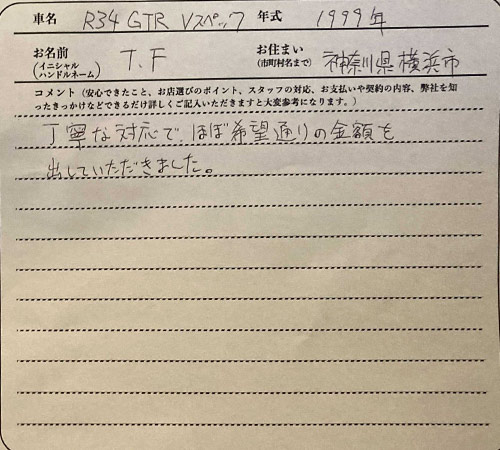 車名 R34 GTR Vスペック 年式 1999年
お名前 (イニシャル ハンドルネーム) T.F お住まい (市町村名まで) 神奈川県横浜市
コメント（安心できたこと、お店選びのポイント、スタッフの対応、お支払いや契約の内容、弊社を知
ったきっかけなどできるだけ詳しくご記入いただきますと大変参考になります。）
丁寧な対応で、ほぼ希望通りの金額を
出していただきました。